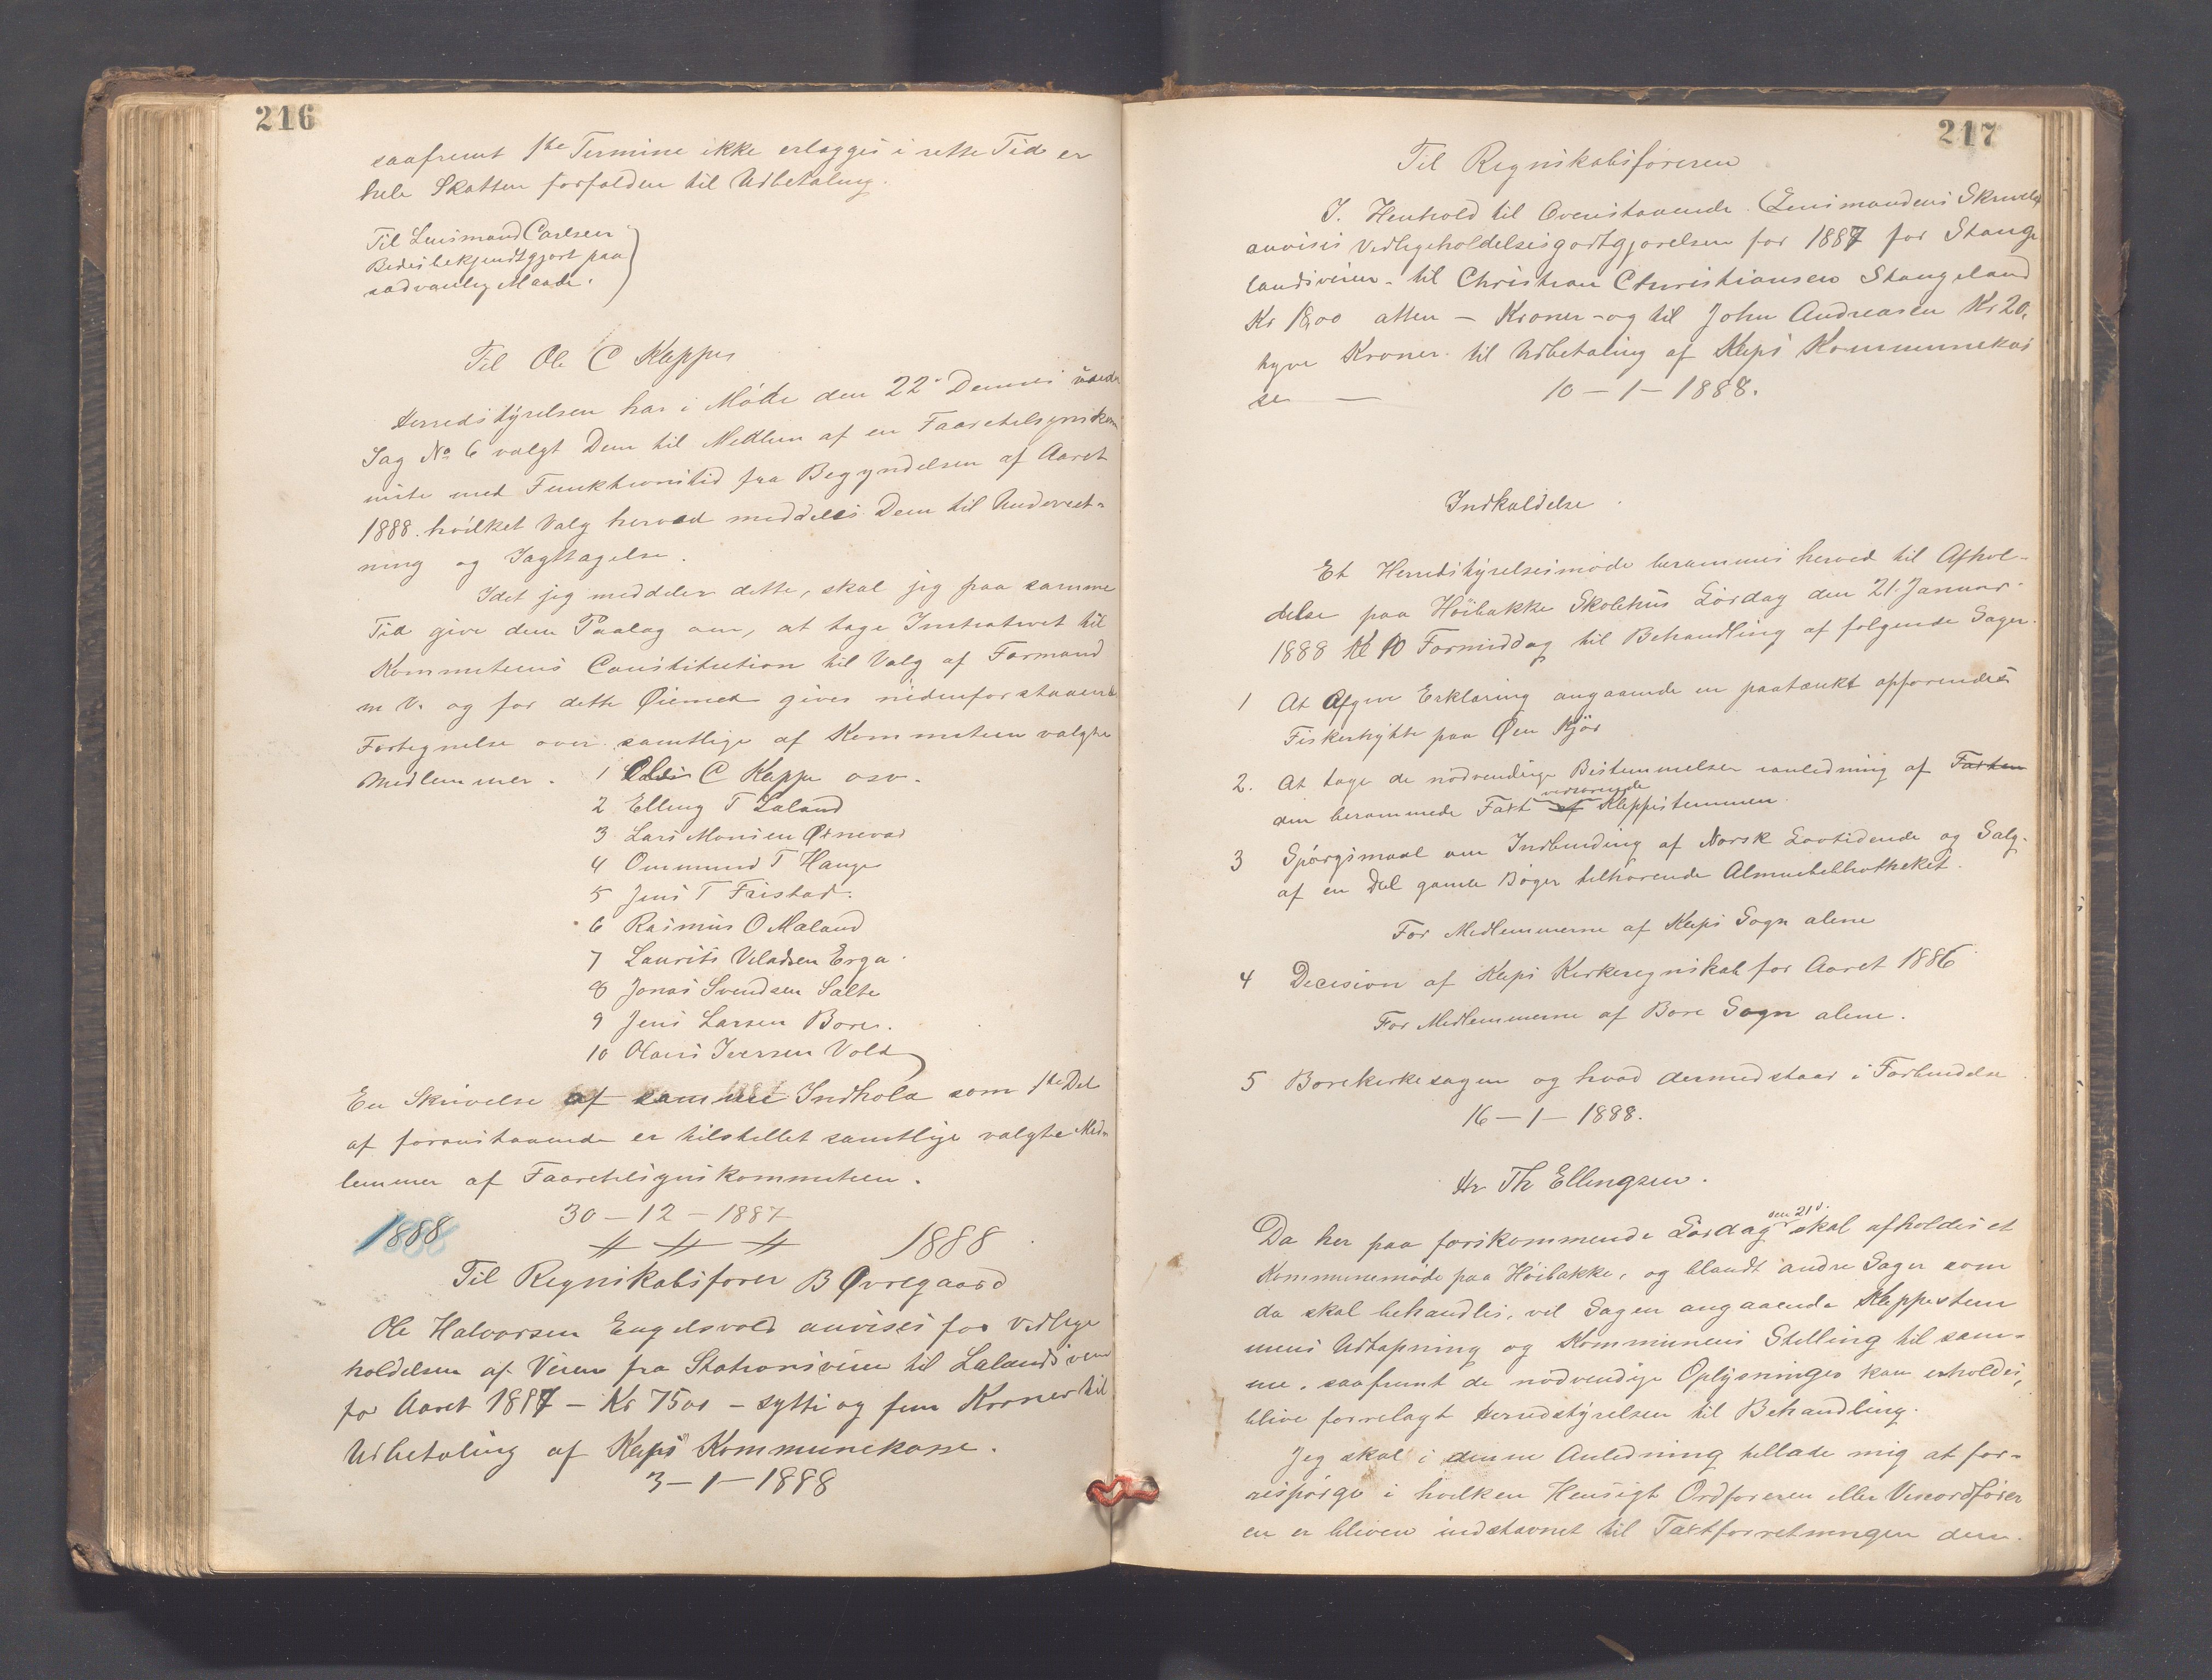 216
saafremt 1ste Termine ikke erlægges i rette Tid er
hele Skatten forfalden til Udbetaling.
Til Lensmand Carlsen
Bedes bekjendtgjort paa
sædvanlig Maade.
Til Ole C Kleppe
Herredstyrelsen har i Møde den 22de Dennes under
Sag No 6 valgt Dem til Medlem af en Faaretilsynskom
mite med Funktionstid fra Begyndelsen af Aaret
1888. hvilket Valg herved meddeles Dem til Underret-
ning og Iagttagelse.
Idet jeg meddeler dette, skal jeg paa samme
Tid give dem Paalæg om, at tage Initiativet til
Kommiteens Constitution til Valg af Formand
m V. og for dette Øiemed gives nedenforstaaende
Fortegnelse over samtlige af Kommiteen valgte
Medlemmer. 1 Ole C Kleppe osv.
2 Elling T Laland
3 Lars Monsen Øxnevad
4 Ommund T Hauge
5 Jens T Friestad.
6 Rasmus O Maland
7 Laurits Veladsen Erga.
8 Jonas Svendsen Salte
9 Jens Larsen Bore.
10 Olaus Iversen Vold
En Skrivelse af samme Indhold som 1ste Del
af foranstaaende er tilstillet samtlige valgte Med-
lemmer af Faaretilsynskommiteen.
30-12-1887
1888 # # # 1888
Til Regnskabsfører B Øvregaard
Ole Halvorsen Engelsvold anvises for Vedlige
holdelsen af Veien fra Stationsveien til Lalandsveien
for Aaret 1887 – Kr 7500 – sytti og fem Kroner til
Udbetaling af Kleps Kommunekasse.
3-1-1888
217
Til Regnskabsføreren
I. Henhold til Ovenstaaende (Lensmandens Skrivelse
anvises Vedligeholdelsesgodtgjørelsen for 1887 for Stange
landsveien. til Christian Christiansen Stangeland
Kr 18,00 atten – Kroner – og til John Andreasen Kr 20,
tyve Kroner. til Udbetaling af Kleps Kommunekas
se – 10-1-1888.
Indkaldelse.
Et Herredstyrelsesmøde berammes herved til Afhol-
delse paa Høibakke Skolehus Lørdag den 21. Januar
1888 Kl 10 Formiddag til Behandling af følgende Sager.
1 At Afgive Erklæring angaaende en paatænkt opførendes
Fiskerhytte paa Øen Kjør
2. At tage de nødvendige Bestemmelser ianledning af Taxten
den berammede Taxt af vedrørende Kleppestemmen.
3 Spørgsmaal om Indbinding af Norsk Lovtidende og Salg.
af en Del gamle Bøger tilhørende Almuebibliotheket.
For Medlemmerne af Kleps Sogn alene
4 Decision af Kleps Kirkeregnskab for Aaret 1886
For Medlemmerne af Bore Sogn alene.
5 Borekirkesagen og hvad dermed staar i Forbindelse
16-1-1888.
Hr Th Ellingsen.
Da her paa førstkommende Lørdag den 21d. skal afholdes et
Kommunemøde paa Høibakke, og blandt andre Sager som
da skal behandles, vil Sagen angaaende Kleppestem
mens Udtapning og Kommunens Stilling til sam-
me. saafremt de nødvendige Oplysninger kan erholdes,
blive forrelagt Herredstyrelsen til Behandling.
Jeg skal i denne Anledning tillade mig at for-
respørge i hvilken Hensigt Ordføreren eller Viceordfører
en er bleven indstævnet til Taxtforretningen den